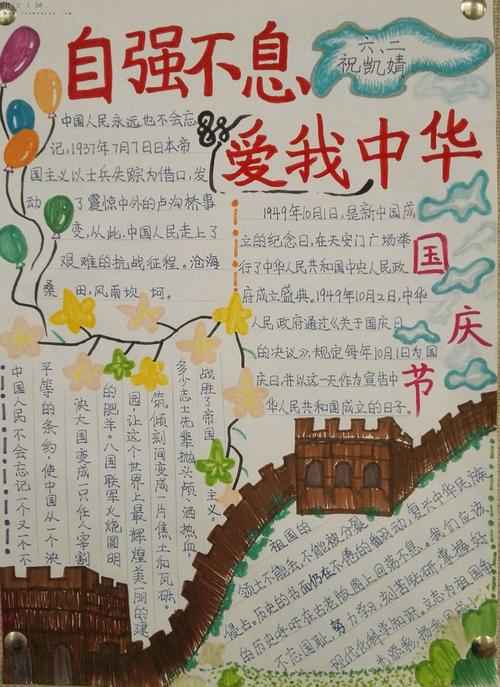 自强不息
爱我中华
六、二
祝凯婧
中国人民永远也不会忘
记,1937年7月7日日本帝
国主义以士兵失踪为借口,发
动了震惊中外的卢沟桥事
变,从此,中国人民走上了
艰难的抗战征程。沧海
桑田,风雨坎坷。
1949年10月1日,是新中国成
立的纪念日,在天安门广场举
行了中华人民共和国中央人民政
府成立盛典。1949年10月2日,中华
人民政府通过《关于国庆日
的决议》,规定每年10月1日为国
庆日,并以这一天作为宣告中
华人民共和国成立的日子。
国庆节
中国人民不会忘记一个又一个不
平等的条约,使中国从一个泱
泱大国变成一只任人宰割
的肥羊。八国联军火烧圆明
园,让这个世界上最辉煌美丽的建
筑倾刻间变成一片焦土和风砾。
多少志士先辈抛头颅,洒热血,
战胜了帝国主义。
祖国的
领土不能丢,不能被分裂
侵占,历史的书面仍在不倦的翻动,复兴中华民族
的历史呼吁在古老版图上回荡不息。我们应该
不忘国耻,努力学习,刻苦钻研,掌握好
现代化科学知识,立志为祖国